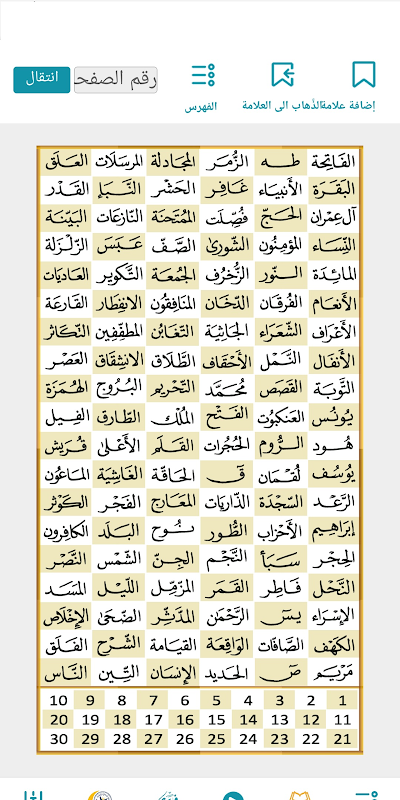 انتقال رقم الصفح
الفهرس الذهاب الى العلامة إضافة علامة
الفَاتِحَة طه الزُّمَر المجَادلة المرسَلات العَلَق
البَقَرَة الأنبيَاء غَافِر الحَشْر النَّبَإ القَدْر
آل عِمْران الحَجّ فُصِّلَت المُمْتَحنَة النّازعَات البَيّنَة
النِّسَاء المؤمِنُون الشّورىٰ الصَّف عَبَسَ الزّلزَلة
المائِدَة النّور الزّخرُف الجُمعَة التَّكوير العَاديَات
الأنعَام الفُرقَان الدّخَان المنَافِقُون الانفِطَار القَارعَة
الأعرَاف الشّعَرَاء الجَاثِيَة التّغَابُن المطفّفِين التّكاثر
الأنفَال النَّمْل الأحْقاف الطّلَاق الانشِقاق العَصْر
التَّوبَة القَصَص مُحَمَّد التّحْريم البُرُوج الهُمَزَة
يُونُس العَنكبُوت الفَتْح المُلك الطّارق الفِيل
هُود الرُّوم الحُجُرات القَلَم الأعْلى قُرَيش
يُوسُف لُقمَان ق الحَاقّة الغَاشِيَة الماعُون
الرَّعد السَّجْدَة الذّاريَات المعَارج الفَجْر الكَوثر
إبراهِيم الأحْزاب الطُّور نُوح البَلَد الكافِرون
الحِجْر سَبَأ النَّجْم الجِنّ الشَّمْس النَّصْر
النَّحْل فَاطِر القَمَر المزّمّل اللّيْل المَسَد
الإسْرَاء يسٓ الرَّحْمٰن المدّثِّر الضّحىٰ الإخْلَاص
الكَهْف الصَّافات الوَاقِعَة القيَامَة الشَّرْح الفَلَق
مَريَم صٓ الحَديد الإنسَان التِّين النَّاس
1 2 3 4 5 6 7 8 9 10
11 12 13 14 15 16 17 18 19 20
21 22 23 24 25 26 27 28 29 30